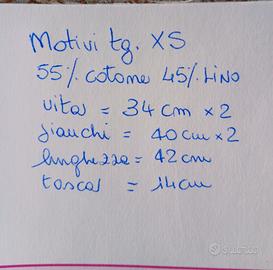 Motivi tg. XS
55% cotone 45% LiNO
vita = 34 cm x 2
fianchi = 40 cm x 2
lunghezza = 42 cm
tasca = 14 cm
subito